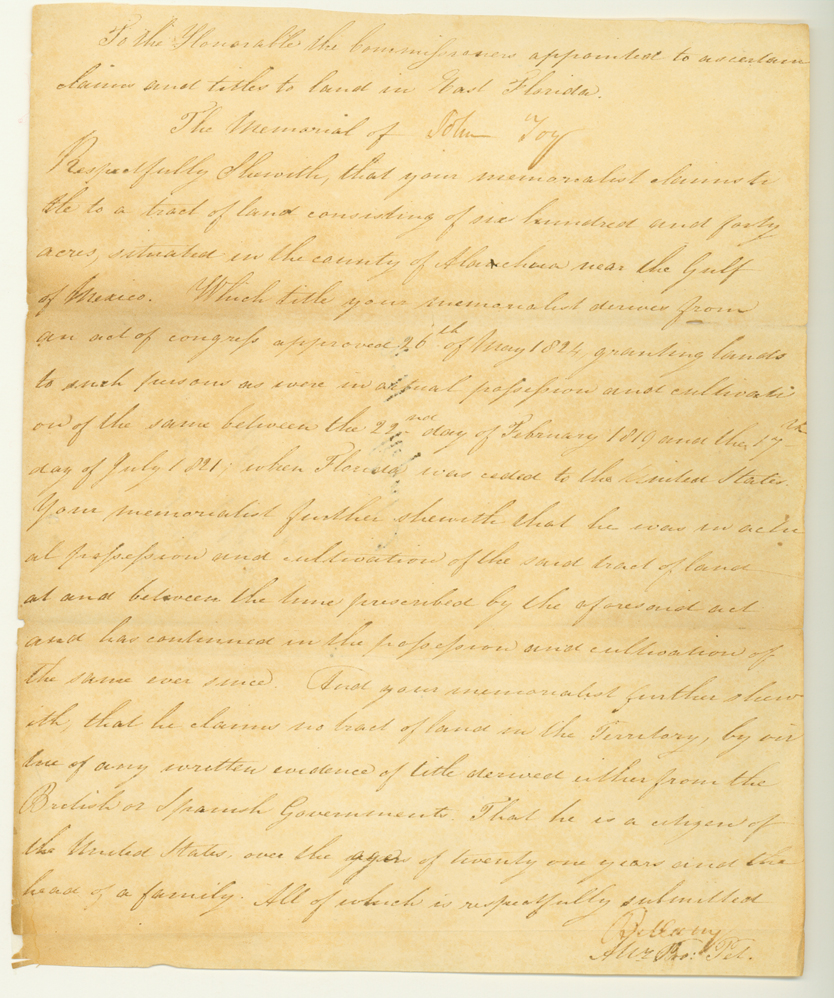 To the Honorable the Commissioners appointed to ascertain
claims and titles to land in East Florida.
The Memorial of John Toy
Respectfully Shewith, that your memorialist claims ti
tle to a tract of land consisting of six hundred and forty
acres, situated in the county of Alarchua near the Gulf
of Mexico. Which title your memorialist derives from
an act of congress approved 26th of May 1824 granting lands
to such persons as were in actual possession and cultivati
on of the same between the 22nd day of February 1819 and the 17th
day of July 1821; when Florida was ceded to the United States.
Your memorialist further shewith that he was in actu
al possession and cultivation of the said tract of land
at and between the time prescribed by the aforesaid act
and has continued in the possession and cultivation of
the same ever since. And your memorialist further shew
ith, that he claims no tract of land in the Territory, by vir
tue of any written evidence of title derived either from the
British or Spanish Governments. That he is a citizen of
the United States, over the age of twenty one years and the
head of a family. All of which is respectfully submitted
Atty. Pro. Pet.